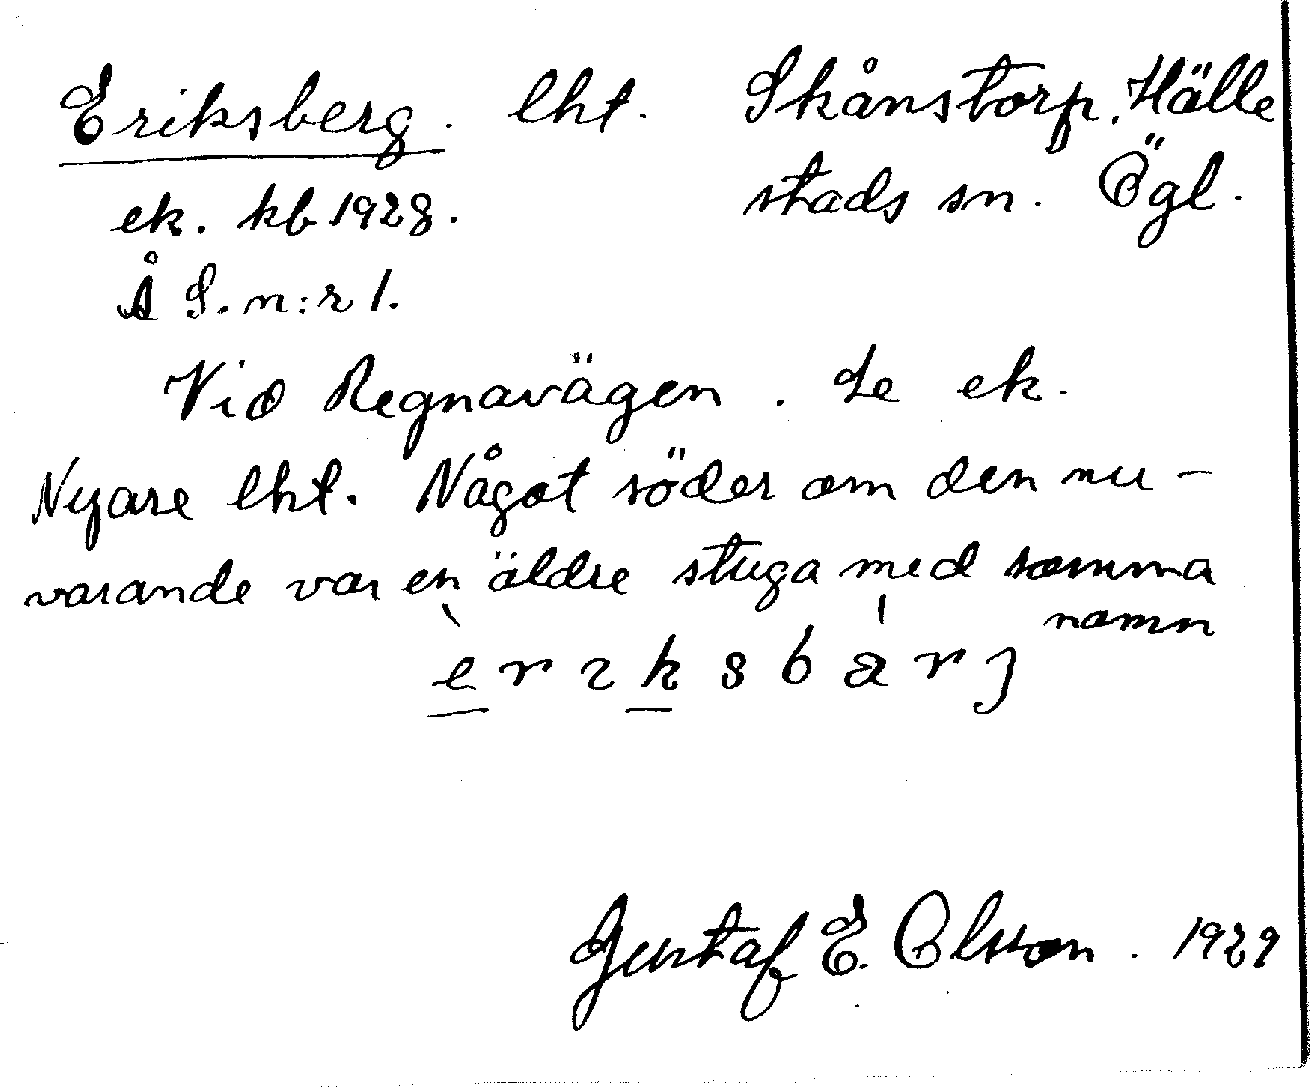 Eriksberg. lht. Skånstorp, Hälle
stads sn. Ögl.
ek. kb 1928.
Å S. n:r 1.
Vid Regnavägen. Le ek.
Nyare lht. Något söder om den nu-
varande var en äldre stuga med samma
namn
èrıksbä́rj
Gustaf E. Olsson. 1929